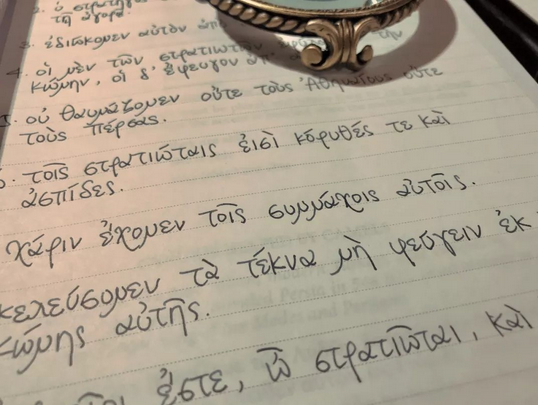 2. ὁ στρατη
τῇ ἀγορᾷ.
3. ἐδιώκομεν αὐτὸν
4. οἱ μὲν τῶν στρατιωτῶν
κώμην, οἱ δ' ἔφευγον
οὐ θαυμάζομεν οὔτε τοὺς Ἀθηναίους οὔτε
τοὺς Πέρσας.
τοῖς στρατιώταις εἰσὶ κόρυθές τε καὶ
ἀσπίδες.
χάριν ἔχομεν τοῖς συμμάχοις αὐτοῖς.
κελεύσομεν τὰ τέκνα μὴ φεύγειν ἐκ
κώμης αὐτῆς.
ἐστε, ὦ στρατιῶται, καὶ